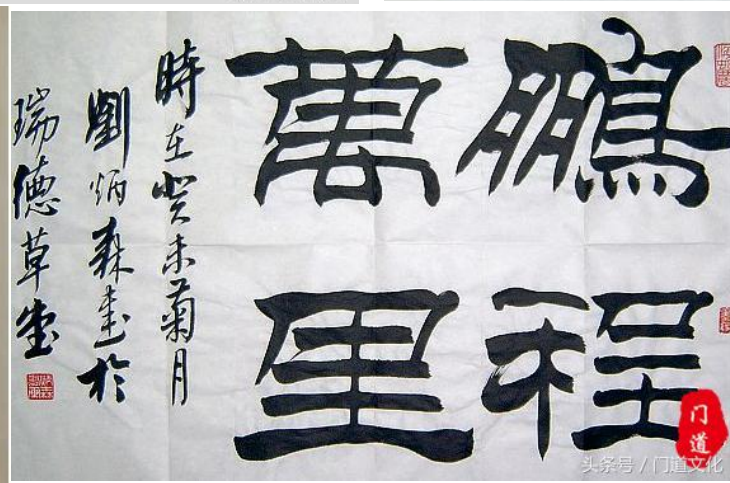 鵬程
萬里
時在癸未菊月
劉炳森書於
瑞德草堂
门道
头条号 / 门道文化